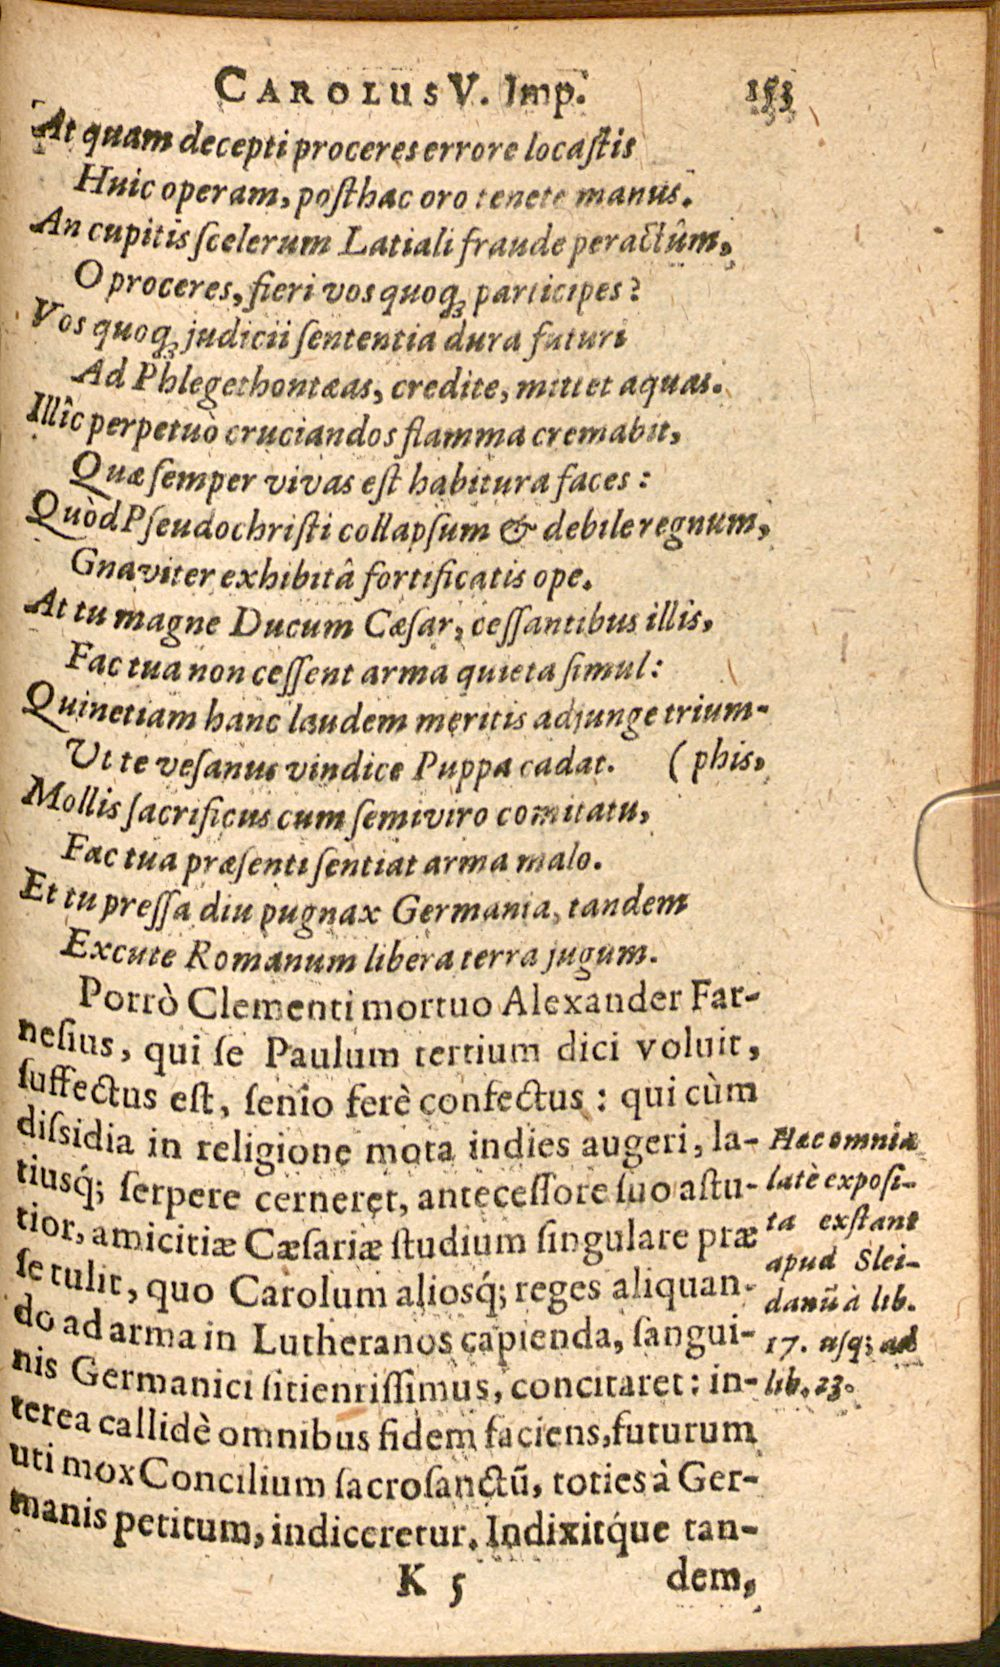 CAROLUS V. Imp. 153
At quam decepti proceres errore locaſtis
Huic operam, poſthac oro tenete manus.
An cupitis ſcelerum Latiali fraude peractûm,
O proceres, fieri vos quoqꝫ participes?
Vos quoqꝫ judicii ſententia dura futuri
Ad Phlegethontæas, credite, mittet aquas.
Illîc perpetuò cruciandos flamma cremabit,
Quæ ſemper vivas eſt habitura faces:
Quòd Pſeudochriſti collapſum & debile regnum,
Gnaviter exhibitâ fortificatis ope.
At tu magne Ducum Cæſar, ceſſantibus illis,
Fac tua non ceſſent arma quieta ſimul:
Quinetiam hanc laudem meritis adjunge trium-
Ut te veſanus vindice Puppa cadat. (phis,
Mollis ſacrificus cum ſemiviro comitatu,
Fac tua præſenti ſentiat arma malo.
Et tu preſſa diu pugnax Germania, tandem
Excute Romanum libera terra jugum.
Porrò Clementi mortuo Alexander Far-
neſius, qui ſe Paulum tertium dici voluit,
ſuffectus eſt, ſenio ferè confectus: qui cùm
diſsidia in religione mota indies augeri, la-
tiusq́; ſerpere cerneret, anteceſſore ſuo aſtu-
tior, amicitiæ Cæſariæ ſtudium ſingulare præ
ſe tulit, quo Carolum aliosq́; reges aliquan-
do ad arma in Lutheranos capienda, ſangui-
nis Germanici ſitientiſſimus, concitaret: in-
terea callidè omnibus fidem faciens, futurum
uti mox Concilium ſacroſanctũ, toties à Ger-
manis petitum, indiceretur. Indixitq́ue tan-
Hæc omnia
latè expoſi-
ta exſtant
apud Slei-
danũ à lib.
17. uſq; ad
lib. 23.
K 5 dem,